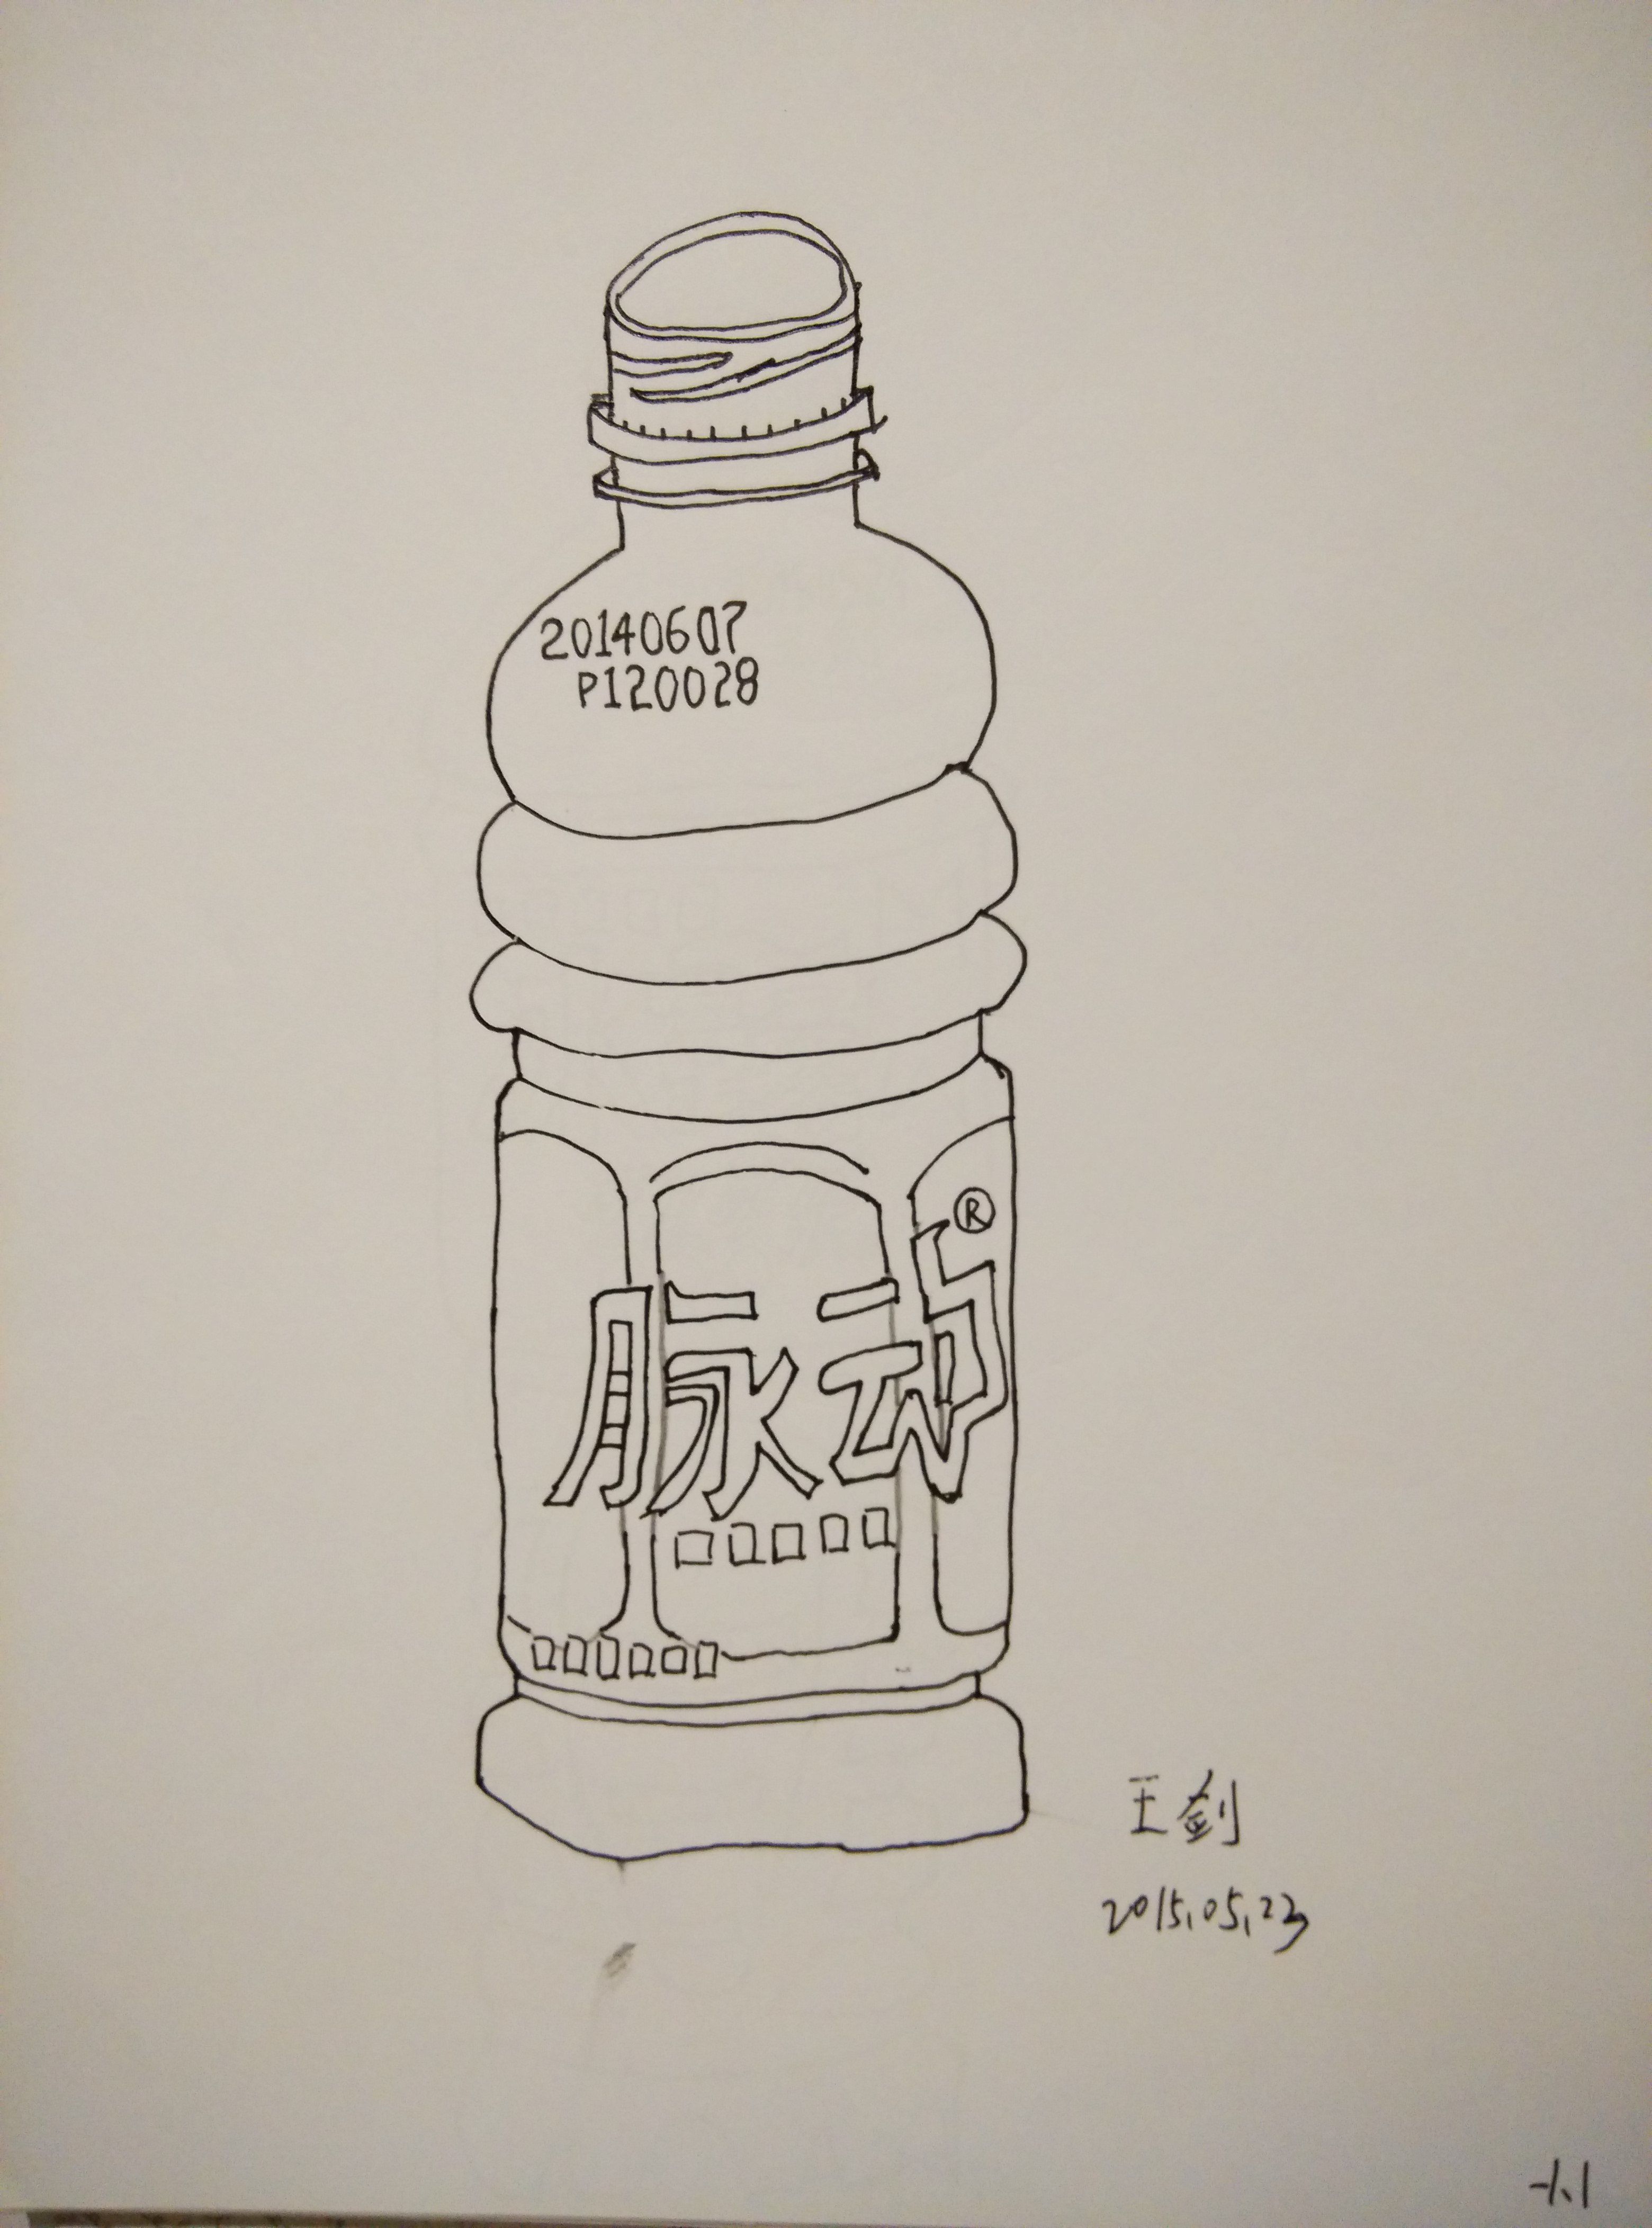 20140607
P120028
®
脉动
□□□□□
□□□□□□
王剑
2015.05.23